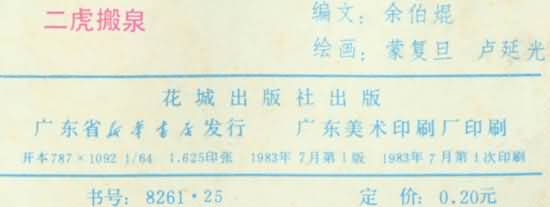 二虎搬泉
编文：余伯焜
绘画：蒙复旦 卢延光
花城出版社出版
广东省新华书店发行 广东美术印刷厂印刷
开本787×1092 1/64 1.625印张 1983年7月第1版 1983年7月第1次印刷
书号：8261·25 定价：0.20元